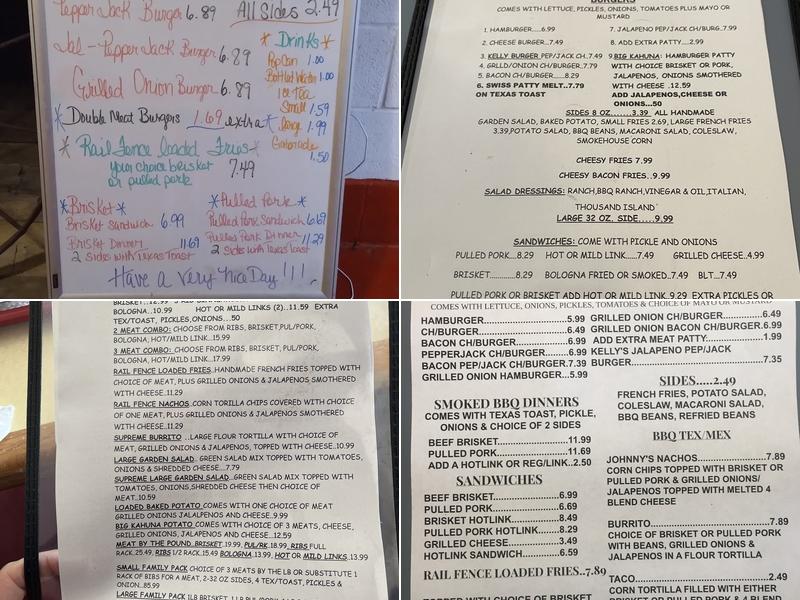 Pepper Jack Burger 6.89
All Sides 2.49
Jal-Pepper Jack Burger 6.89
Grilled Onion Burger 6.89
*Double Meat Burgers 1.69 extra*
* Rail Fence loaded Fries *
your choice brisket
or pulled pork 7.49
* Drinks
Pop Can 1.00
Bottled Water 1.00
Ice Tea
Small 1.59
Large 1.99
Gatorade
1.50
*Brisket*
Brisket Sandwich 6.99
Brisket Dinner 11.69
2 Sides with Texas Toast
*Pulled Pork*
Pulled Pork Sandwich 6.69
Pulled Pork Dinner 11.29
2 Sides with Texas Toast
Have a Very Nice Day!!!
BURGERS
COMES WITH LETTUCE, PICKLES, ONIONS, TOMATOES PLUS MAYO OR
MUSTARD
1. HAMBURGER......6.99
2. CHEESE BURGER..7.49
3. KELLY BURGER PEPJACK CH..7.49
4. GRLLD/ONION CH/BURGER..7.79
5. BACON CH/BURGER......8.29
6. SWISS PATTY MELT..7.79
ON TEXAS TOAST
7. JALAPENO PEP/JACK CH/BURG..7.99
8. ADD EXTRA PATTY.....2.99
9.BIG KAHUNA: HAMBURGER PATTY
WITH CHOICE BRISKET OR PORK,
JALAPENOS, ONIONS SMOTHERED
WITH CHEESE .12.59
ADD JALAPENOS,CHEESE OR
ONIONS...50
SIDES 8 OZ.......3.39 ALL HANDMADE
GARDEN SALAD, BAKED POTATO, SMALL FRIES 2.69, LARGE FRENCH FRIES
3.39,POTATO SALAD, BBQ BEANS, MACARONI SALAD, COLESLAW,
SMOKEHOUSE CORN
CHEESY FRIES 7.99
CHEESY BACON FRIES..9.99
SALAD DRESSINGS: RANCH,BBQ RANCH,VINEGAR & OIL,ITALIAN,
THOUSAND ISLAND
LARGE 32 OZ. SIDE.....9.99
SANDWICHES: COME WITH PICKLE AND ONIONS
PULLED PORK....8.29 HOT OR MILD LINK......7.49 GRILLED CHEESE..4.99
BRISKET............8.29 BOLOGNA FRIED OR SMOKED..7.49 BLT...7.49
PULLED PORK OR BRISKET ADD HOT OR MILD LINK 9.29 EXTRA PICKLES OR
BOLOGNA...10.99 HOT OR MILD LINKS (2)...11.59 EXTRA
TEX/TOAST, PICKLES,ONIONS...50
2 MEAT COMBO: CHOOSE FROM RIBS, BRISKET,PUL/PORK,
BOLOGNA, HOT/MILD LINK...15.99
3 MEAT COMBO: CHOOSE FROM RIBS, BRISKET, PUL/PORK,
BOLOGNA, HOT/MILD LINK...17.99
RAIL FENCE LOADED FRIES..HANDMADE FRENCH FRIES TOPPED WITH
CHOICE OF MEAT, PLUS GRILLED ONIONS & JALAPENOS SMOTHERED
WITH CHEESE...11.29
RAIL FENCE NACHOS..CORN TORTILLA CHIPS COVERED WITH CHOICE
OF ONE MEAT, PLUS GRILLED ONIONS & JALAPENOS SMOTHERED
WITH CHEESE...11.29
SUPREME BURRITO ..LARGE FLOUR TORTILLA WITH CHOICE OF
MEAT, GRILLED ONIONS & JALAPENOS, TOPPED WITH CHEESE..10.99
LARGE GARDEN SALAD..GREEN SALAD MIX TOPPED WITH TOMATOES,
ONIONS & SHREDDED CHEESE...7.79
SUPREME LARGE GARDEN SALAD..GREEN SALAD MIX TOPPED WITH
TOMATOES, ONIONS,SHREDDED CHEESE THEN CHOICE OF
MEAT..10.59
LOADED BAKED POTATO COMES WITH ONE CHOICE OF MEAT
GRILLED ONIONS JALAPENOS AND CHEESE..9.99
BIG KAHUNA POTATO COMES WITH CHOICE OF 3 MEATS, CHEESE,
GRILLED ONIONS, JALAPENOS AND CHEESE...12.59
MEAT BY THE POUND..BRISKET.19.99, PUL/RK.18.99, RIBS FULL
RACK.25.49, RIBS 1/2 RACK.15.49 BOLOGNA.13.99, HOT OR MILD LINKS.13.99
SMALL FAMILY PACK CHOICE OF 3 MEATS BY THE LB OR SUBSTITUTE 1
RACK OF BIBS FOR A MEAT, 2-32 OZ SIDES, 4 TEX/TOAST, PICKLES &
ONION...85.99
COMES WITH LETTUCE, ONIONS, PICKLES, TOMATOES & CHOICE OF MAYO OR MUSTARD
HAMBURGER.....................5.99
CH/BURGER......................6.49
BACON CH/BURGER............6.99
PEPPERJACK CH/BURGER....6.99
BACON PEP/JACK CH/BURGER.7.39
GRILLED ONION HAMBURGER...5.99
GRILLED ONION CH/BURGER.....6.49
GRILLED ONION BACON CH/BURGER.6.99
ADD EXTRA MEAT PATTY:.........1.99
KELLY'S JALAPENO PEP/JACK
BURGER............................7.35
SMOKED BBQ DINNERS
COMES WITH TEXAS TOAST, PICKLE,
ONIONS & CHOICE OF 2 SIDES
BEEF BRISKET......................11.99
PULLED PORK......................11.69
ADD A HOTLINK OR REG/LINK..2.50
SANDWICHES
BEEF BRISKET......................6.99
PULLED PORK......................6.69
BRISKET HOTLINK..................8.49
PULLED PORK HOTLINK...........8.29
GRILLED CHEESE...................3.49
HOTLINK SANDWICH...............6.59
RAIL FENCE LOADED FRIES..7.89
SIDES.....2.49
FRENCH FRIES, POTATO SALAD,
COLESLAW, MACARONI SALAD,
BBQ BEANS, REFRIED BEANS
BBQ TEX/MEX
JOHNNY'S NACHOS.................7.89
CORN CHIPS TOPPED WITH BRISKET OR
PULLED PORK & GRILLED ONIONS/
JALAPENOS TOPPED WITH MELTED 4
BLEND CHEESE
BURRITO............................7.89
CHOICE OF BRISKET OR PULLED PORK
WITH BEANS, GRILLED ONIONS &
JALAPENOS IN A FLOUR TORTILLA
TACO................................2.49
CORN TORTILLA FILLED WITH EITHER